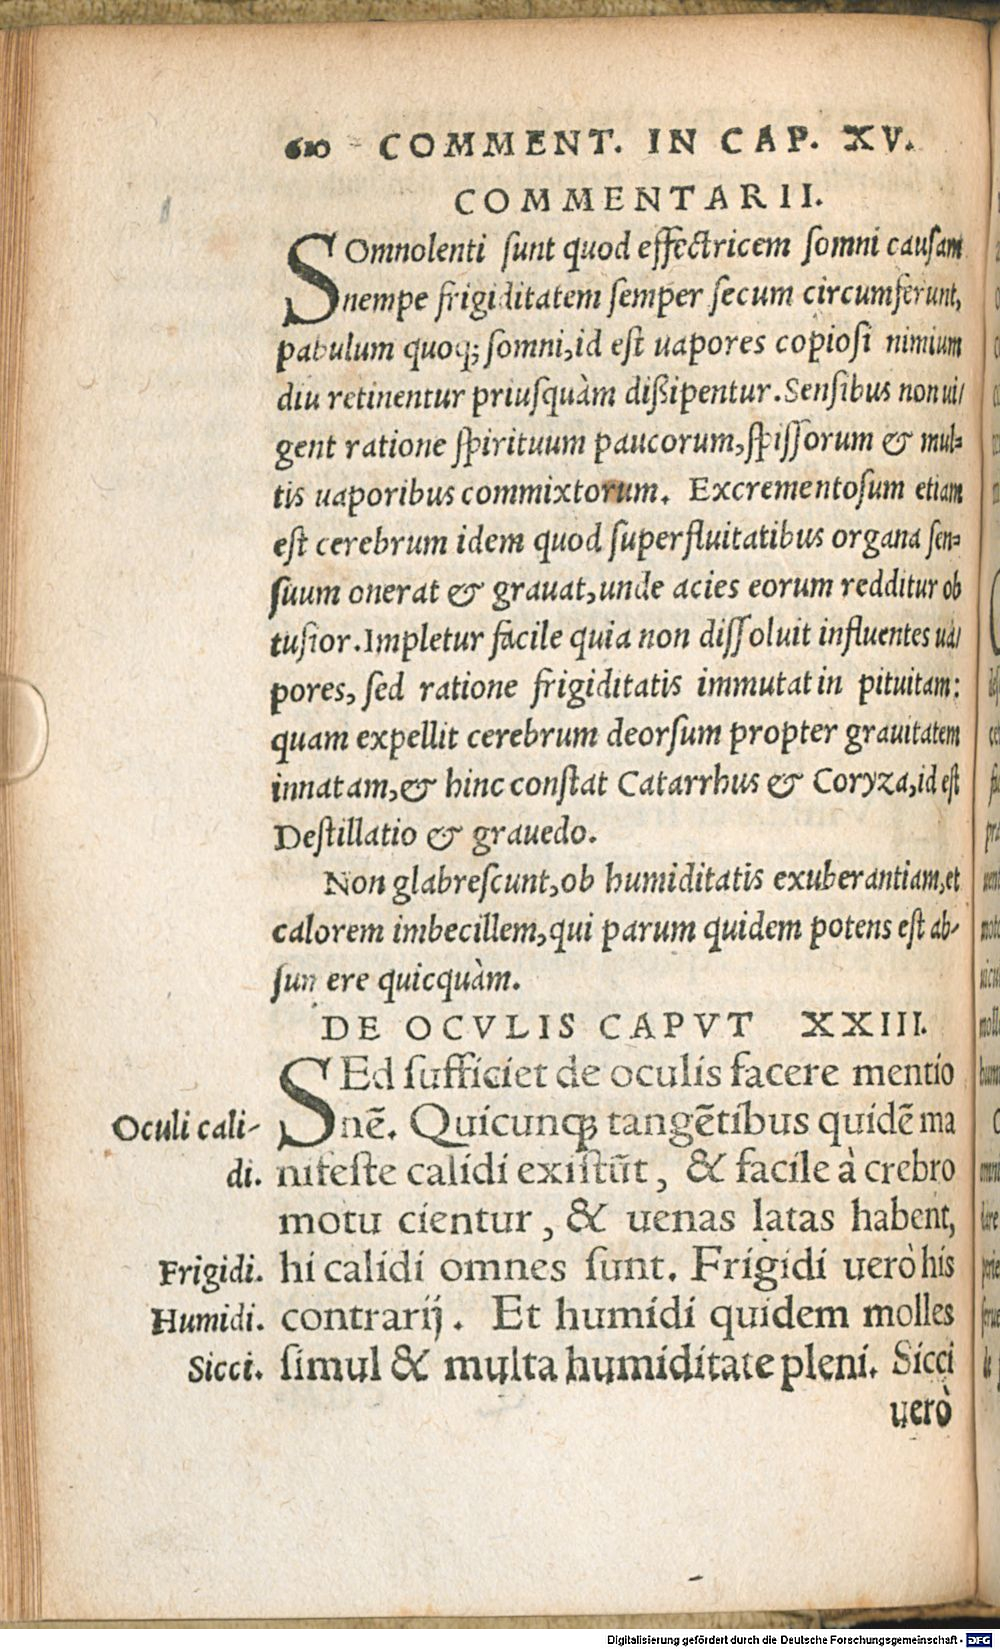 610 COMMENT. IN CAP. XV.
COMMENTARII.
SOmnolenti sunt quod effectricem somni causam
nempe frigiditatem semper secum circumferunt,
pabulum quoq; somni, id est uapores copiosi nimium
diu retinentur priusquàm dißipentur. Sensibus non ui/
gent ratione spirituum paucorum, spissorum & mul=
tis uaporibus commixtorum. Excrementosum etiam
est cerebrum idem quod superfluitatibus organa sen=
suum onerat & grauat, unde acies eorum redditur ob
tusior. Impletur facile quia non dissoluit influentes ua/
pores, sed ratione frigiditatis immutat in pituitam:
quam expellit cerebrum deorsum propter grauitatem
innatam, & hinc constat Catarrhus & Coryza, id est
Destillatio & grauedo.
Non glabrescunt, ob humiditatis exuberantiam, et
calorem imbecillem, qui parum quidem potens est ab-
sum ere quicquàm.
DE OCVLIS CAPVT XXIII.
SEd sufficiet de oculis facere mentio
Oculi cali- nē. Quicunq; tangētibus quidē ma
di. nifeste calidi existūt, & facile à crebro
motu cientur, & uenas latas habent,
Frigidi. hi calidi omnes sunt. Frigidi uerò his
Humidi. contrarij. Et humidi quidem molles
Sicci. simul & multa humiditate pleni. Sicci
uerò
Digitalisierung gefördert durch die Deutsche Forschungsgemeinschaft - DFG